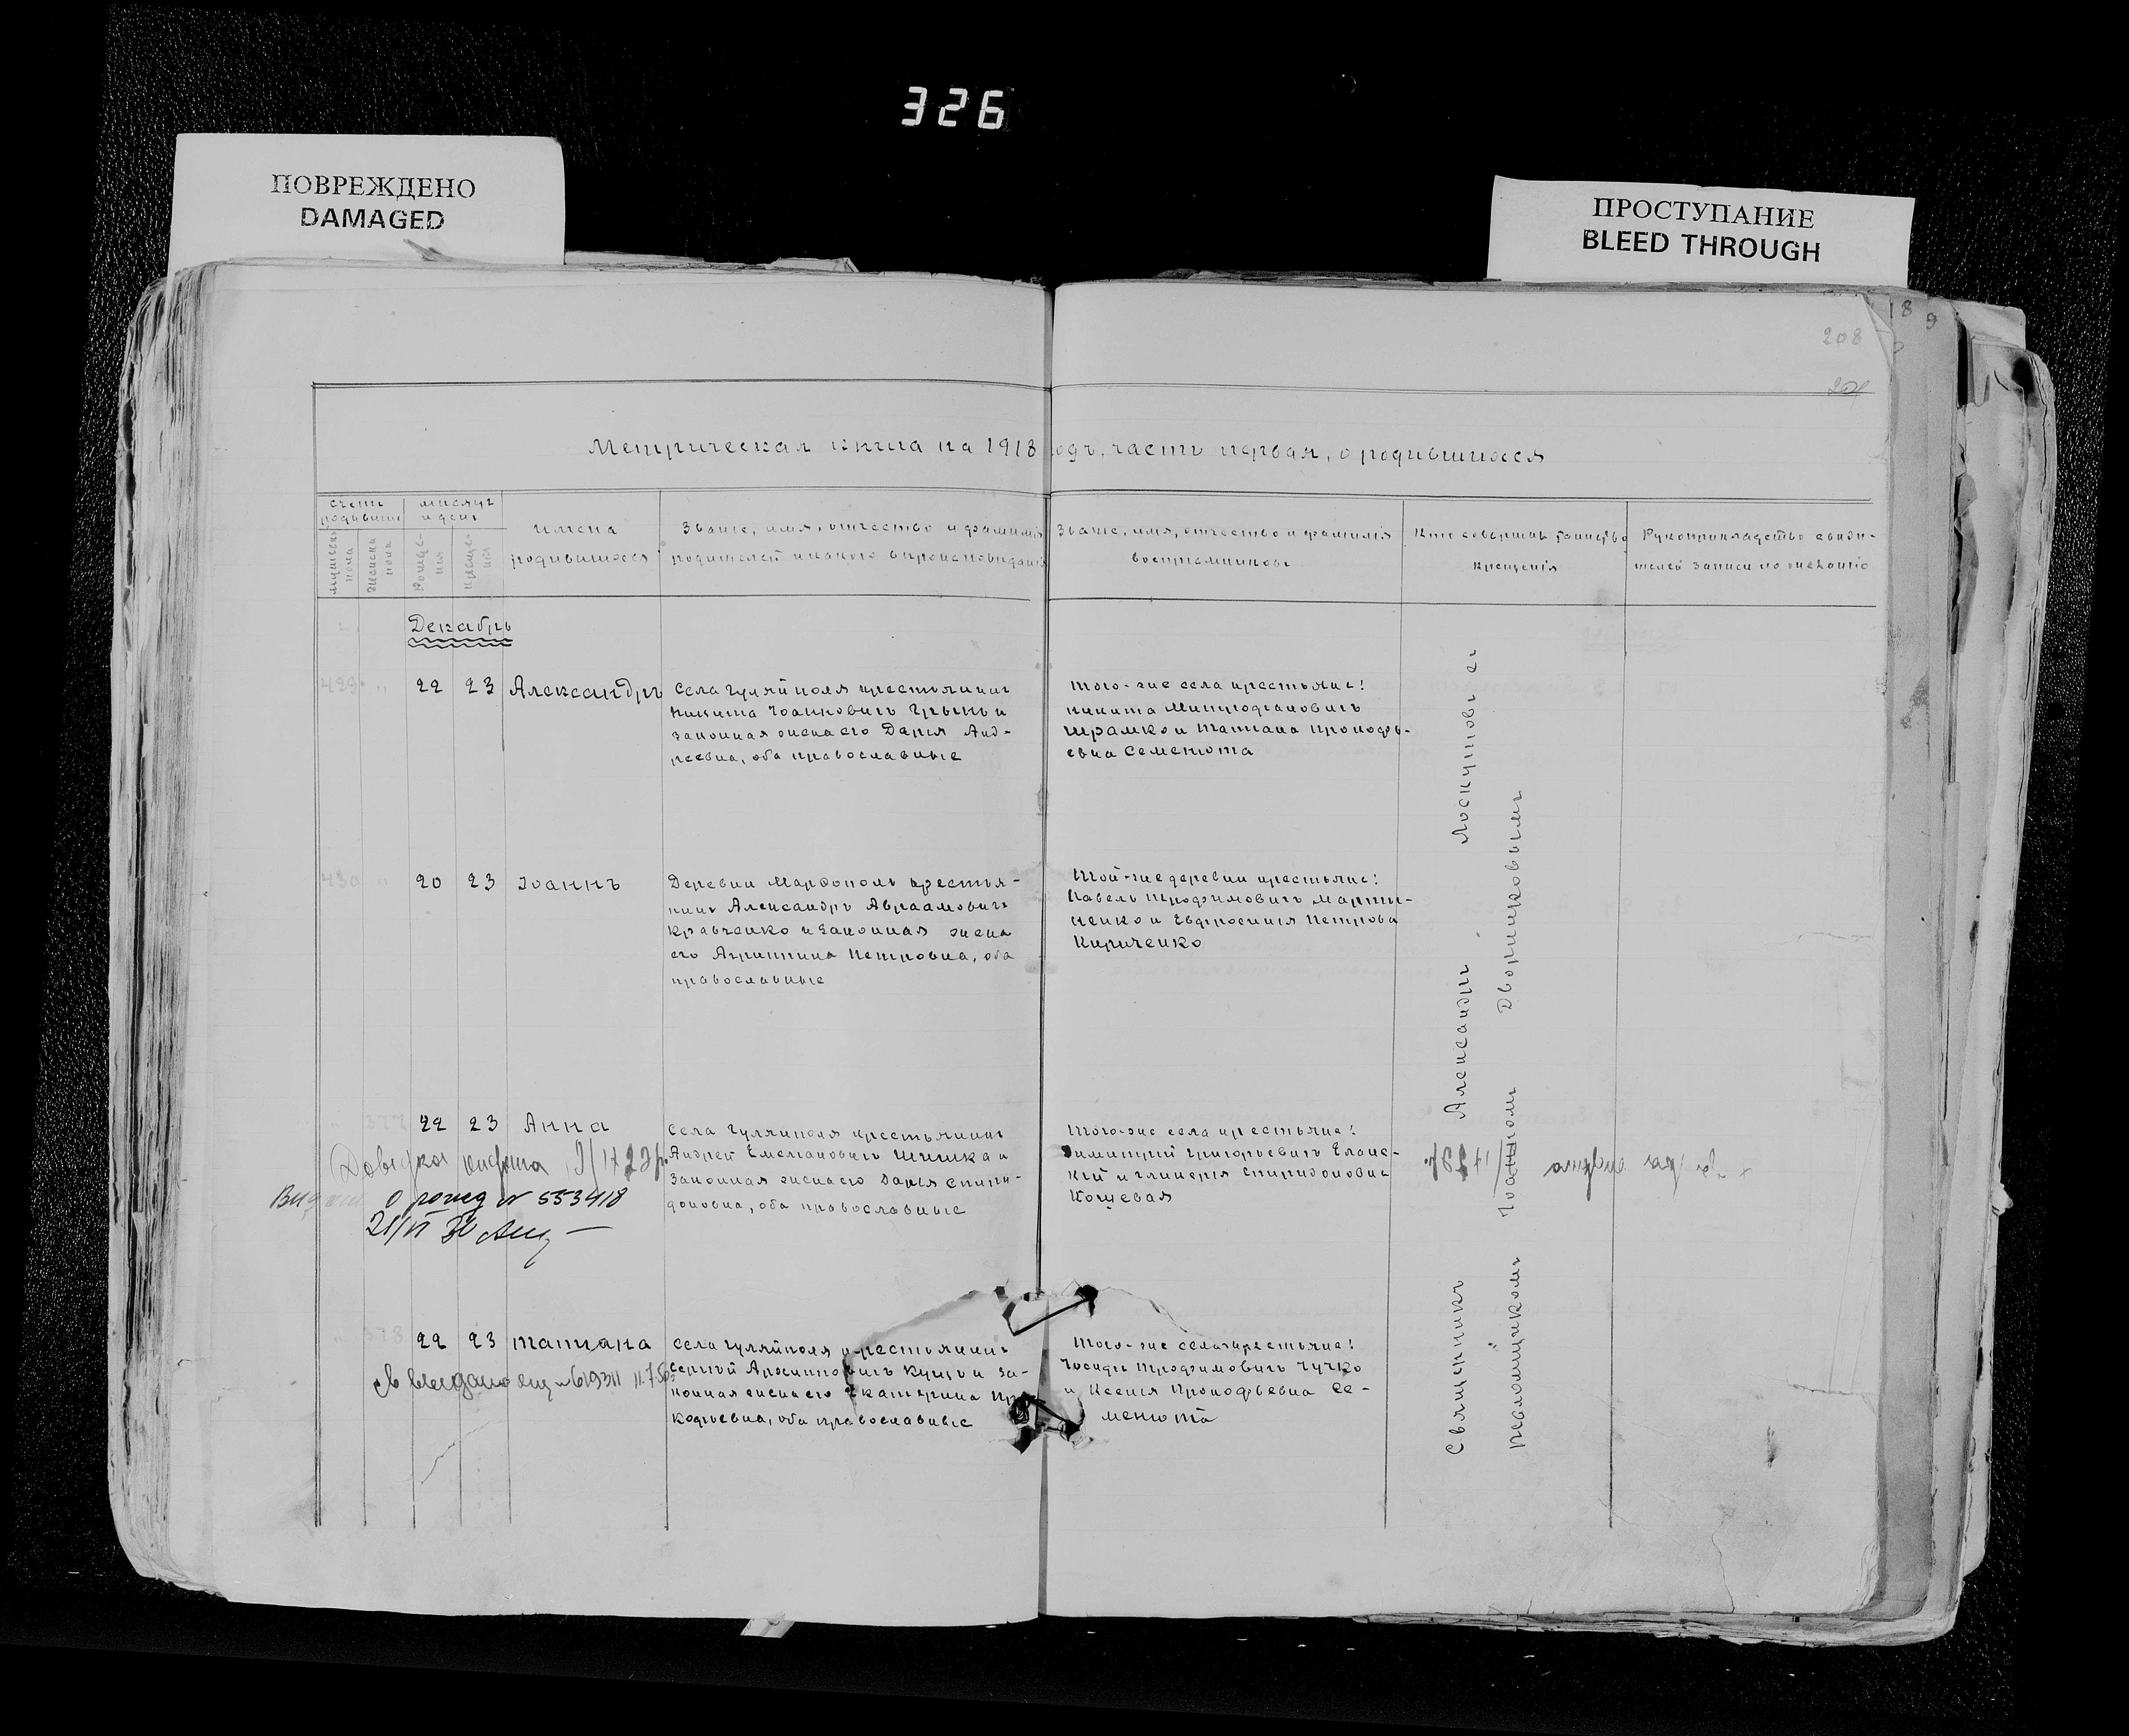 326
ПОВРЕЖДЕНО
DAMAGED
ПРОСТУПАНИЕ
BLEED THROUGH
189
208
Метрическая книга на 1918 годъ, часть первая, о родившихся
счетъ родивших
мѣсяцъ и день
мужеска пола
женска пола
рожде-ния
креще-ния
имена
родившихся
Званіе, имя, отчество и фамилія
родителей и какого вѣроисповѣданія
Званіе, имя, отчество и фамилія
воспріемниковъ
Кто совершалъ таинство
крещенія
Рукоприкладство свидѣ-
телей записи по желанію
Декабрь
429 " 22 23 Александръ
Села Гуляйполя крестьянинъ
Никита Іоанновичъ Грынь и
законная жена его Дарія Анд-
реевна, оба православные
Того-же села крестьяне:
Никита Митрофановичъ
Шрамко и Татіана Прокофь-
евна Семенюта
430 " 20 23 Іоаннъ
Деревни Марфополь крестья-
нинъ Александръ Авраамовичъ
Кравченко и законная жена
его Агриппина Петровна, оба
православные
Той-же деревни крестьяне:
Павелъ Трофимовичъ Марты-
ненко и Евфросинія Петрова
Кириченко
" 377 22 23 Анна
Села Гуляйполя крестьянинъ
Андрей Емельяновичъ Шишка и
законная жена его Дарія Спири-
доновна, оба православные
Того-же села крестьяне:
Димитрій Григорьевичъ Еланс-
кій и Гликерія Спиридоновна
Кощевая
Довідка
о рожд № 553418
" 378 22 23 Татіана
Села Гуляйполя крестьянинъ
Сергѣй Архиповичъ Куцъ и за-
конная жена его Екатерина Про-
кофьевна, оба православные
Того-же села крестьяне:
Іосифъ Трофимовичъ Чучко
и Ксенія Прокофьевна Се-
менюта
св выдано № 619311 11.7.50
Священникъ Александръ Лоскутовъ съ
псаломщикомъ Іоанномъ Дворниковымъ